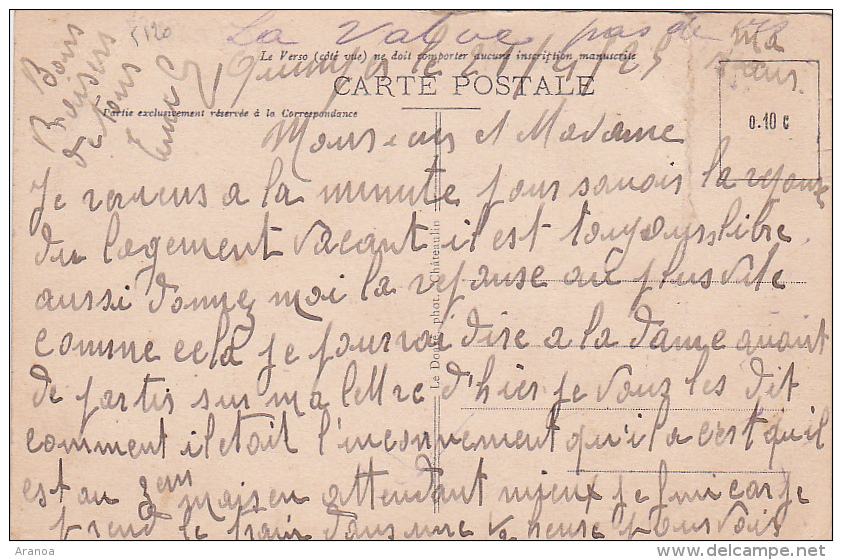 5120
La Valeur pas de
Le Verso (côté vue) ne doit comporter aucune inscription manuscrite
Quimper le
CARTE POSTALE
Partie exclusivement réservée à la Correspondance
0.10 c
Bons
Baisers
de tous
Monsieur et Madame
Je reviens a la minute pour savoir la reponse
du logement vacant il est toujours libre
aussi donnez moi la reponse au plus vite
comme cela je pourrai dire a la dame avant
de partir sur ma lettre d'hier je vous les dit
comment il etait l'inconvenient qu'il a c'est qu'il
est au 3em mais en attendant mieux je fini car je
prend le train dans une 1/2 heure
Le Doaré, phot. Châteaulin
Aranoa
www.delcampe.net